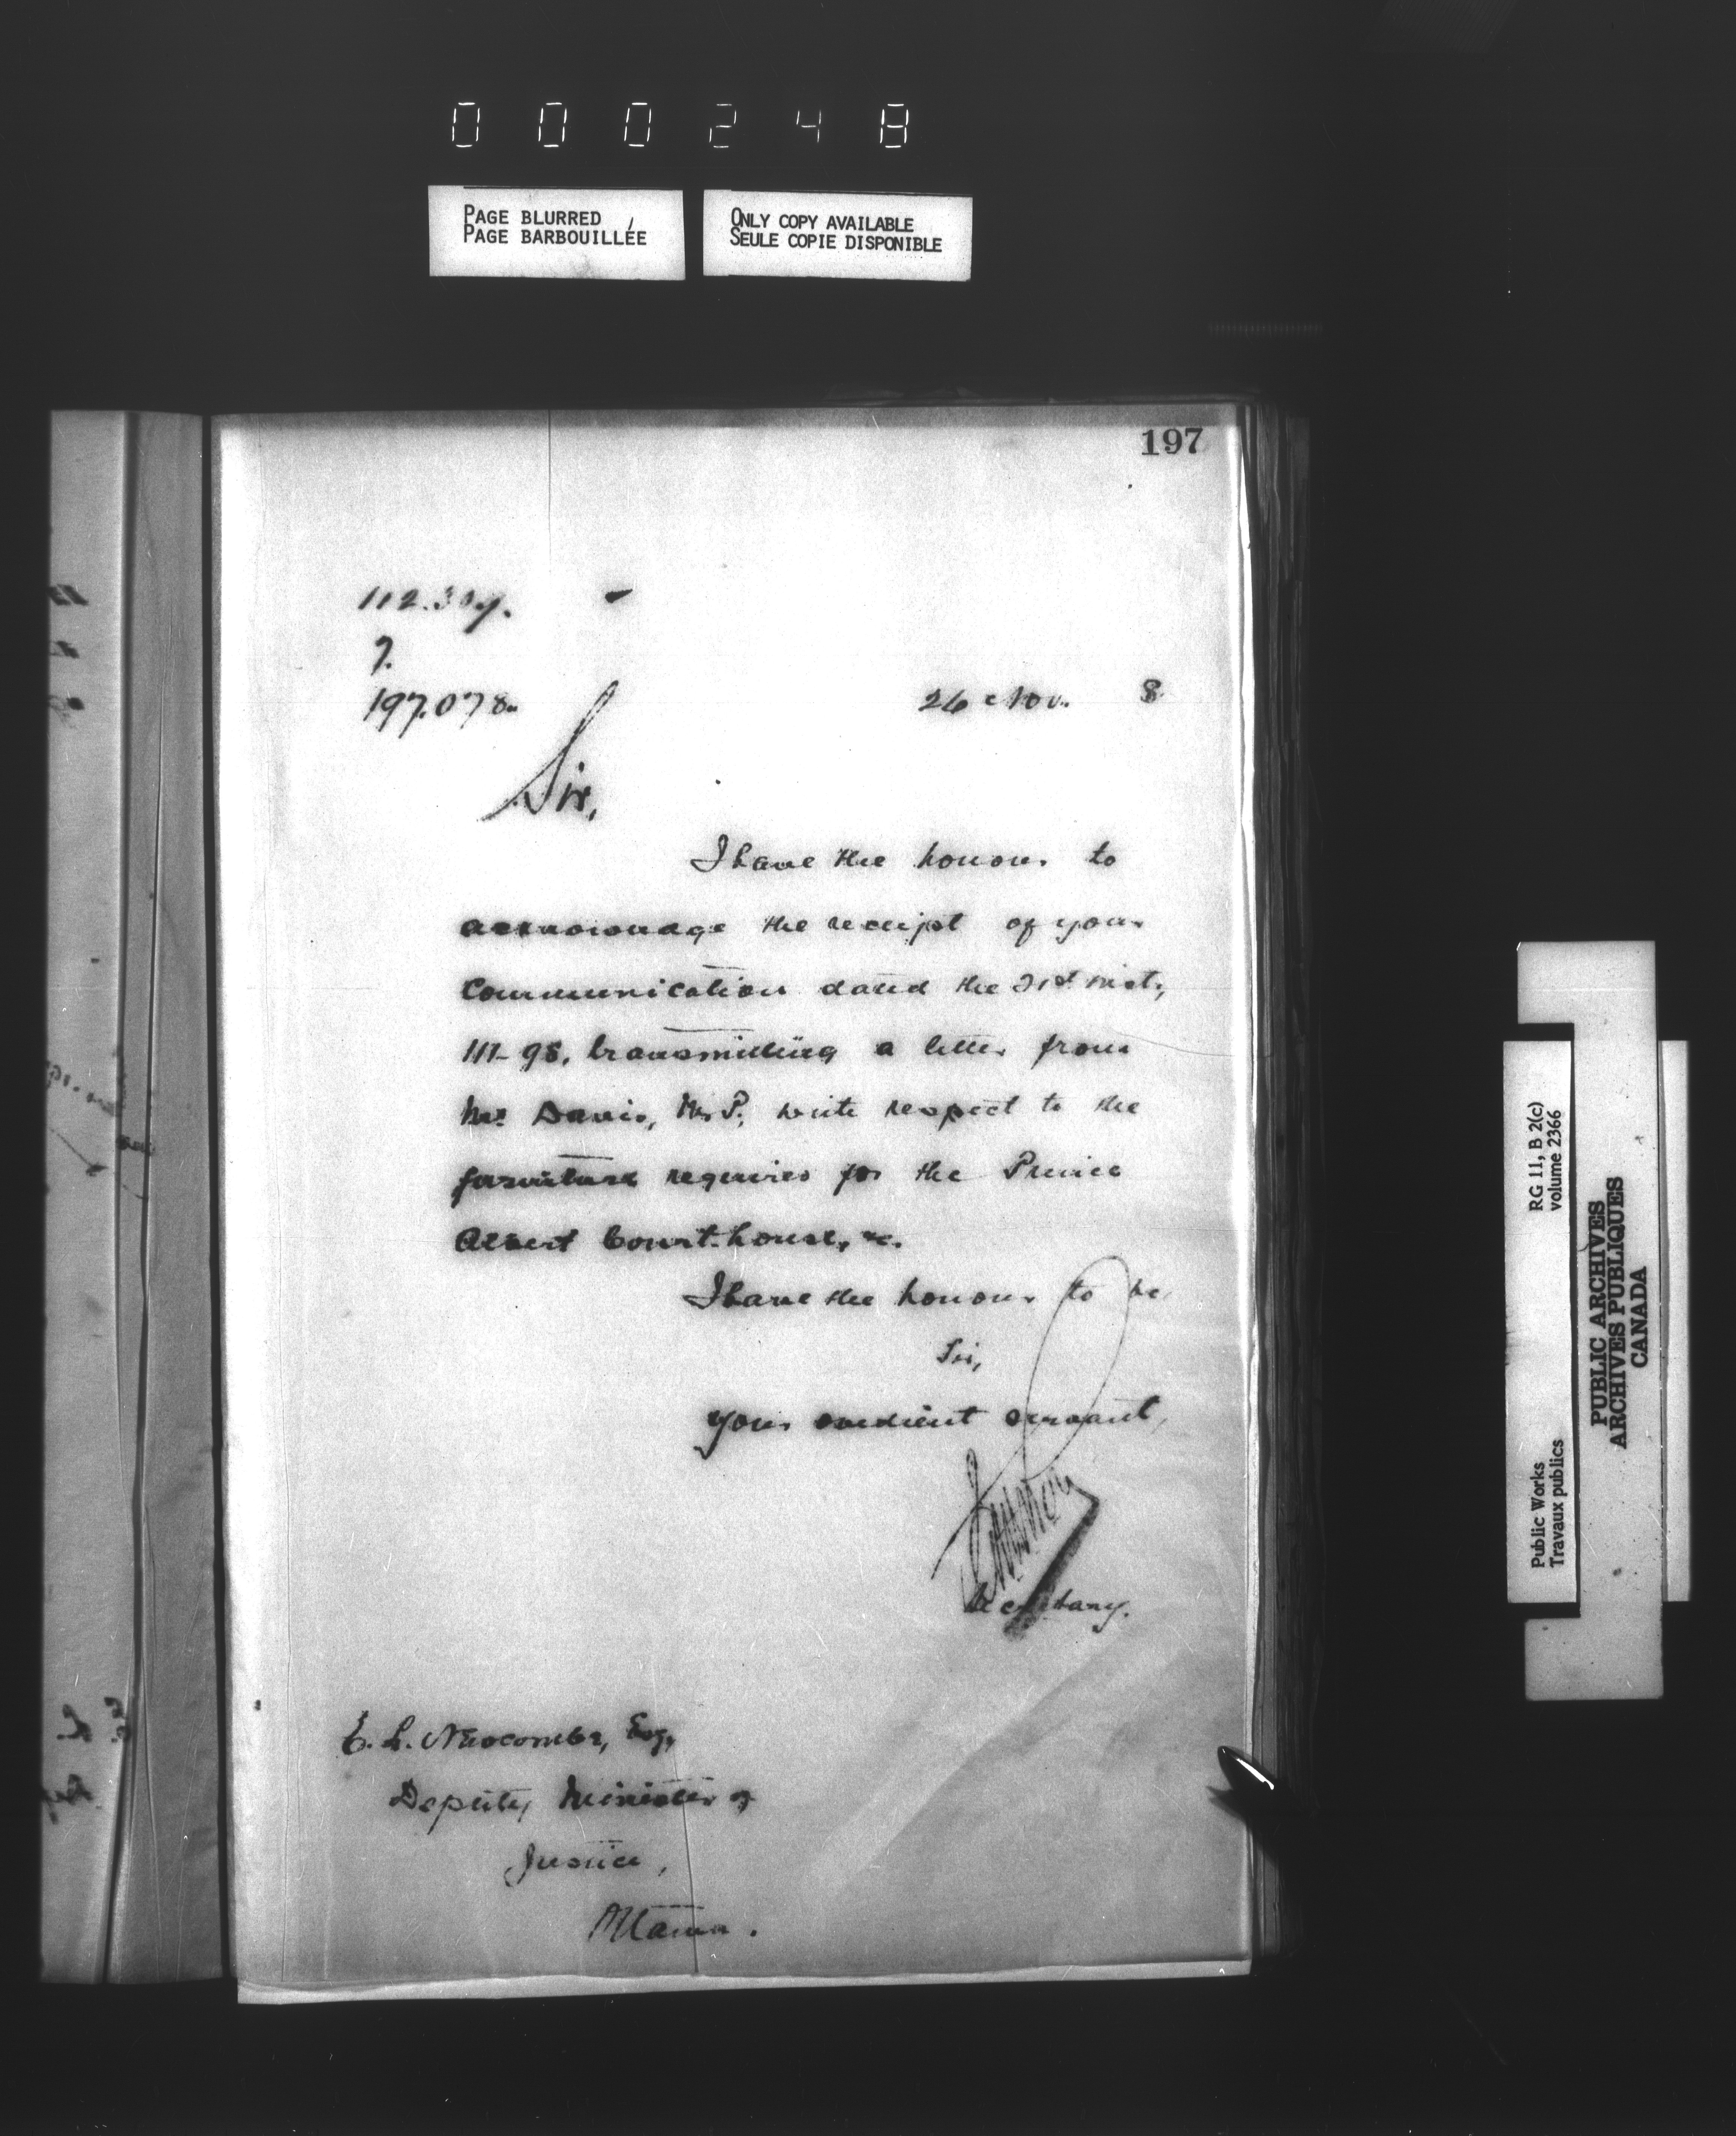 000248
PAGE BLURRED
PAGE BARBOUILLÉE
ONLY COPY AVAILABLE
SEULE COPIE DISPONIBLE
197
7.
197.078.
26 Nov. 8
Sir,
I have the honour to
acknowledge the receipt of your
Communication dated the 21st inst.,
111-98, transmitting a letter from
Mr. Davis, M.P. with respect to the
furniture required for the Prince
Albert Court-house, &c.
I have the honour to be,
Sir,
Your obedient servant,
Secretary.
E. L. Newcombe, Esq,
Deputy Minister of
Justice,
Ottawa.
RG 11, B 2(c)
volume 2366
Public Works
Travaux publics
PUBLIC ARCHIVES
ARCHIVES PUBLIQUES
CANADA